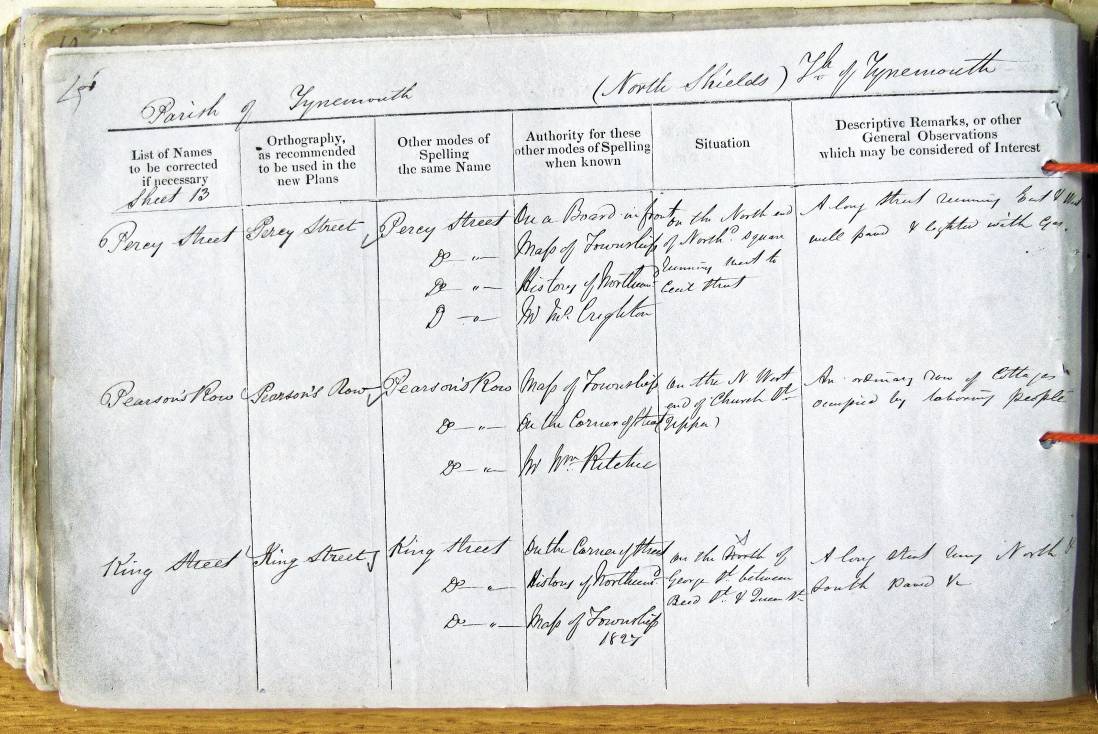 Parish of Tynemouth (North Shields) Th of Tynemouth
List of Names to be corrected if necessary
Orthography, as recommended to be used in the new Plans
Other modes of Spelling the same Name
Authority for these other modes of Spelling when known
Situation
Descriptive Remarks, or other General Observations which may be considered of Interest
Sheet 13
Percy Street
Percy Street
Percy Street
Do "
Do "
D "
On a Board in front
Map of Township
History of Northumd
Mr Crighton
on the North end
of Northd Square
running west to
Cecil Street
A long street running East & West
well paved & lighted with Gas.
Pearson's Row
Pearson's Row
Pearson's Row
Do "
Do "
Map of Township
On the Corner of Street
Mr Wm Ritchie
on the N West
end of Church St
(Upper)
An ordinary row of Cottages
occupied by laboring people
King Street
King Street
King Street
Do "
Do "
On the Corner of Street
History of Northumd
Map of Township
1827
on the North of
George St between
St & Queen St
A long street North &
South paved &c